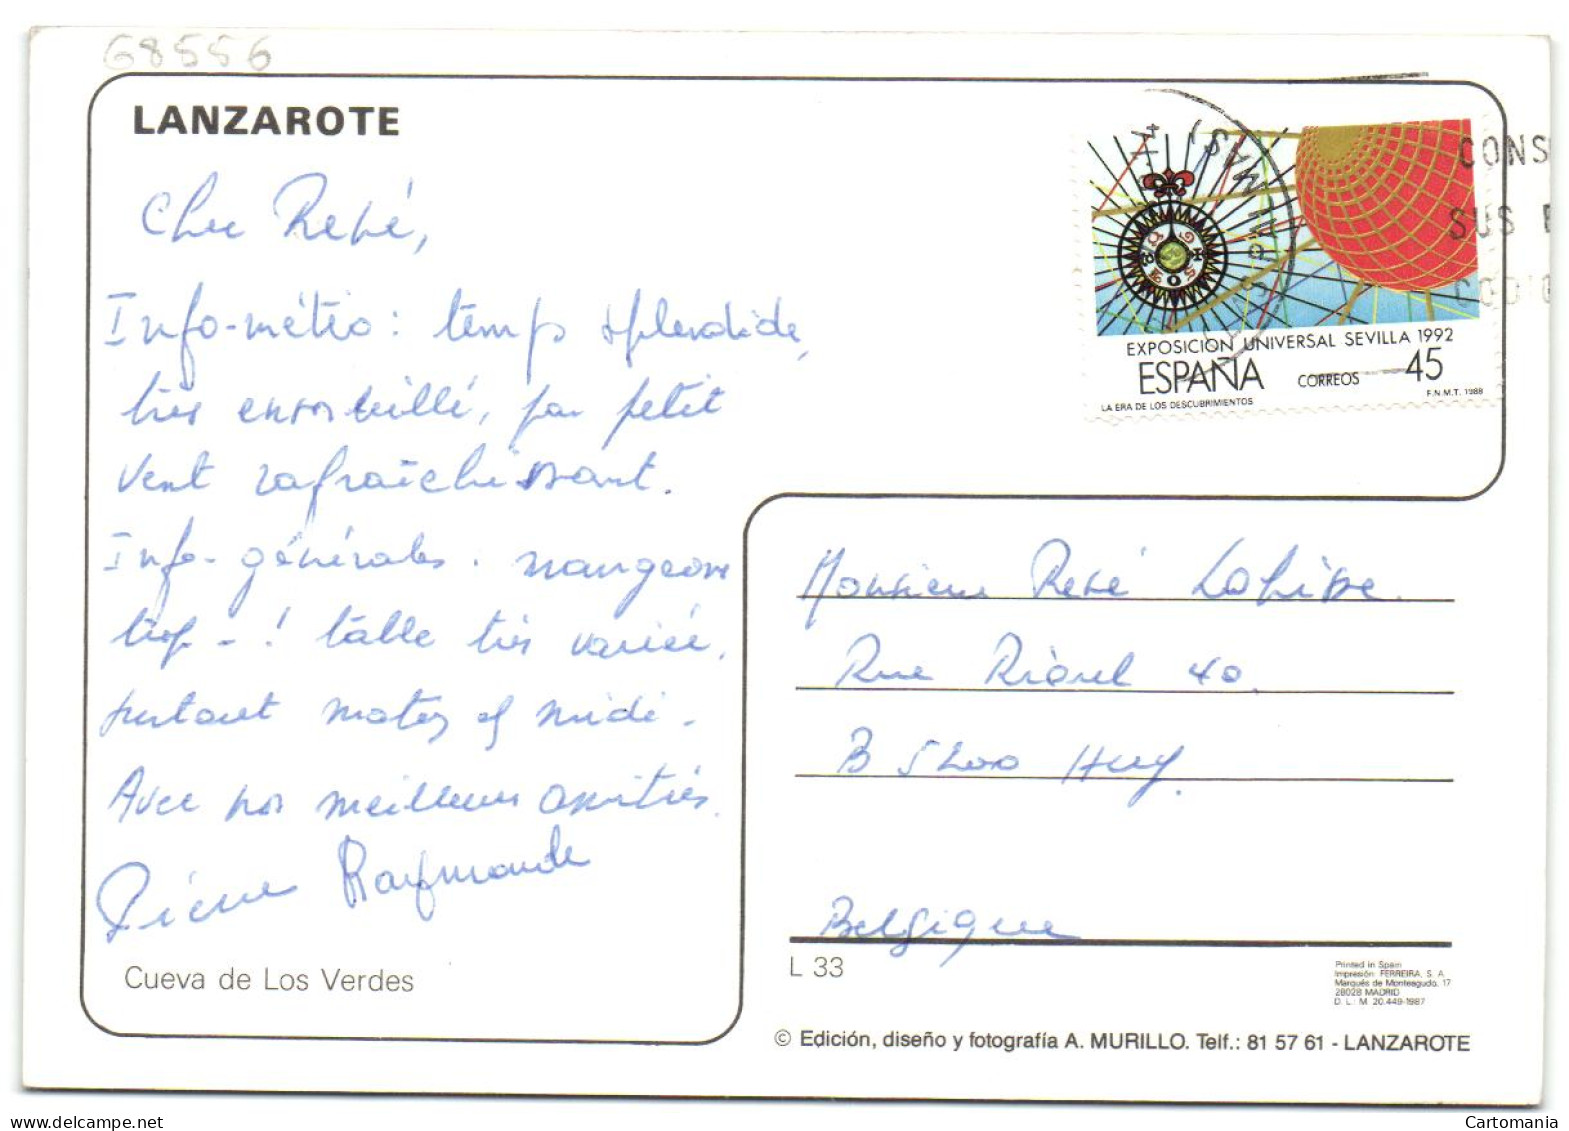 68556
LANZAROTE
Cher René,
Info-météo : temps splendide,
très ensoleillé, par petit
vent rafraîchissant.
Info-générales : mangeons
trop - ! table très variée,
surtout matin et midi -
Avec nos meilleures amitiés.
Pierre Raymonde
Cueva de Los Verdes
CONS
SUS
CODIG
EXPOSICION UNIVERSAL SEVILLA 1992
ESPAÑA CORREOS 45
LA ERA DE LOS DESCUBRIMIENTOS F.N.M.T. 1988
Monsieur René
Rue 40
B 5200 Huy.
Belgique
L 33
Printed in Spain
Impresión FERREIRA, S. A.
Marqués de Monteagudo, 17
28028 MADRID
D. L.: M 20.449-1987
© Edición, diseño y fotografía A. MURILLO. Telf.: 81 57 61 - LANZAROTE
Cartomania
delcampe.net